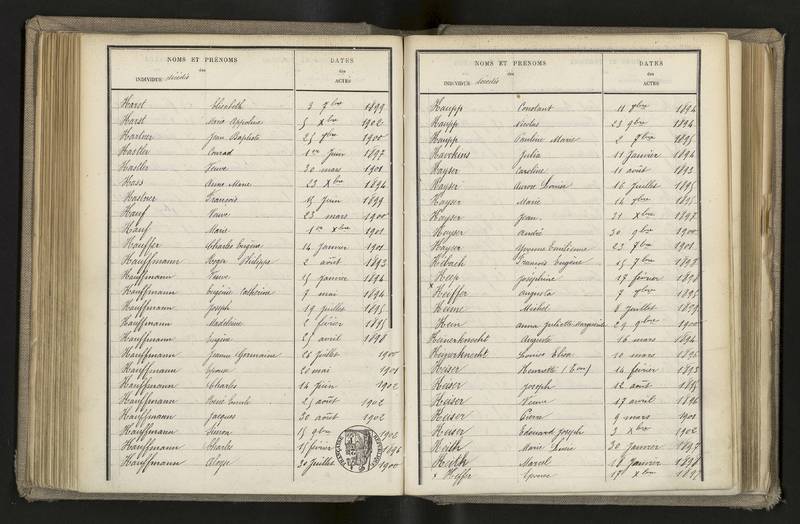 NOMS ET PRÉNOMS
des
INDIVIDUS décédés
DATES
des
ACTES
Harst Elisabeth 3 7bre 1899
Harst Marie Appoline 5 Xbre 1902
Jean Baptiste 25 1900
Conrad 1er Juin 1897
Veuve 30 mars 1901
Hass Anne Marie 23 Xbre 1894
François 15 Juin 1899
Hauf Veuve 23 mars 1900
Hauf Marie 1er Xbre 1901
Hauffer Charles Eugène 14 Janvier 1901
Hauffmann Roger Philippe 2 août 1893
Kauffmann Veuve 15 janvier 1894
Kauffmann Eugénie Catherine 7 mai 1894
Kauffmann Joseph 19 Juillet 1895
Kauffmann Madeleine 2 février 1895
Kauffmann Eugène 25 avril 1898
Kauffmann Jeanne Germaine 26 Juillet 1900
Kauffmann Epoux 20 mai 1901
Kauffmann Charles 14 Juin 1902
Kauffmann René Emile 25 août 1902
Kauffmann Jacques 30 août 1902
Kauffmann Simon 15 9bre 1902
Kauffmann Charles 15 février 1896
Kauffmann Aloyse 30 Juillet 1900
NOMS ET PRÉNOMS
des
INDIVIDUS décédés
DATES
des
ACTES
Haupp Constant 11 1894
Haupp Nicolas 23 9bre 1894
Haupp Pauline Marie 2 7bre 1895
Julia 11 Janvier 1894
Kayser Caroline 11 août 1893
Kayser Louise 16 Juillet 1895
Kayser Marie 14 1895
Kayser Jean 31 Xbre 1897
Kayser André 30 9bre 1900
Kayser Yvonne Emilienne 23 7bre 1901
Keibach François Eugène 15 7bre 1893
Joséphine 17 février 1898
x Keiffer Augusta 7 1895
Michel 8 Juillet 1899
Hein Anna Juliette Marguerite 29 9bre 1900
Keinerknecht Auguste 16 mars 1894
Keinerknecht Louise Elise 10 mars 1896
Keiser Henriette 14 février 1893
Keiser Joseph 12 août 1895
Keiser Veuve 17 avril 1896
Keiser Pierre 9 mars 1901
Keiser Edouard Joseph 3 Xbre 1902
Keith Marie Luise 30 Janvier 1897
Keith Marcel 18 Janvier 1898
x Keffer Epouse 17 Xbre